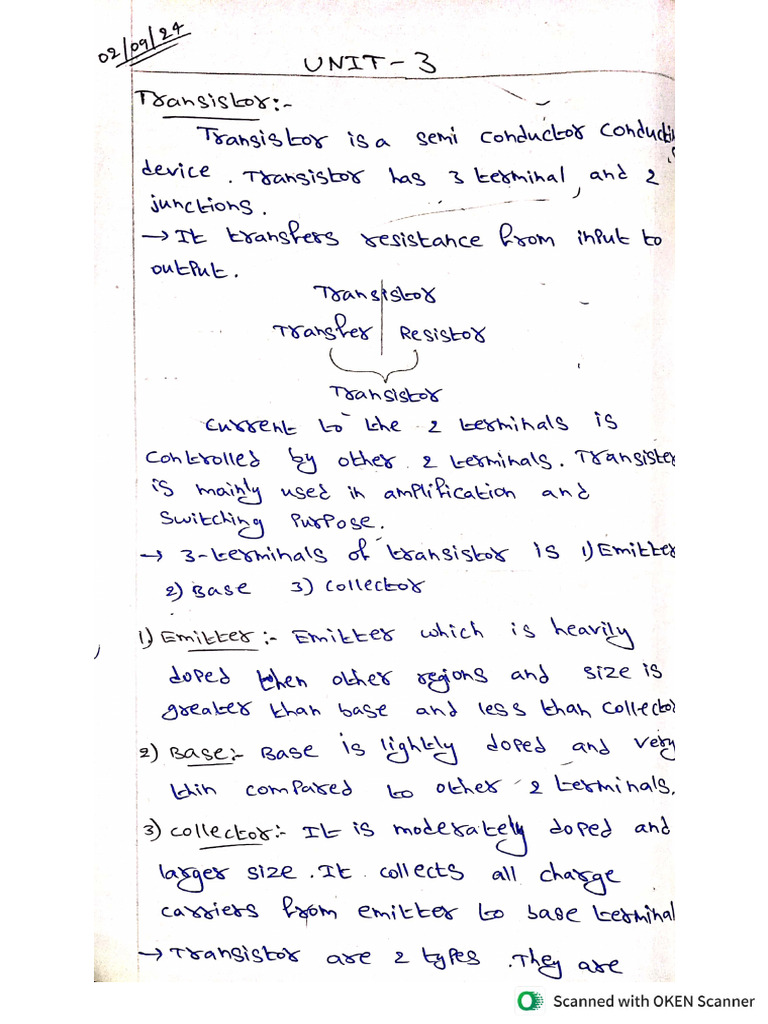 02/09/24
UNIT-3
Transistor:-
Transistor is a semi conductor
device. Transistor has 3 terminal, and 2
junctions.
→ It transfers resistance from input to
output.
Transistor
Transfer | Resistor
Transistor
Current to the 2 terminals is
controlled by other 2 terminals. Transister
is mainly used in amplification and
switching purpose.
→ 3-terminals of transistor is 1) Emitter
2) Base 3) Collector
1) Emitter:- Emitter which is heavily
doped then other regions and size is
greater than base and less than collector
2) Base:- Base is lightly doped and very
thin compared to other 2 terminals.
3) Collector:- It is moderately doped and
larger size. It collects all charge
carriers from emitter to base terminal
→ Transistor are 2 types. They are
Scanned with OKEN Scanner